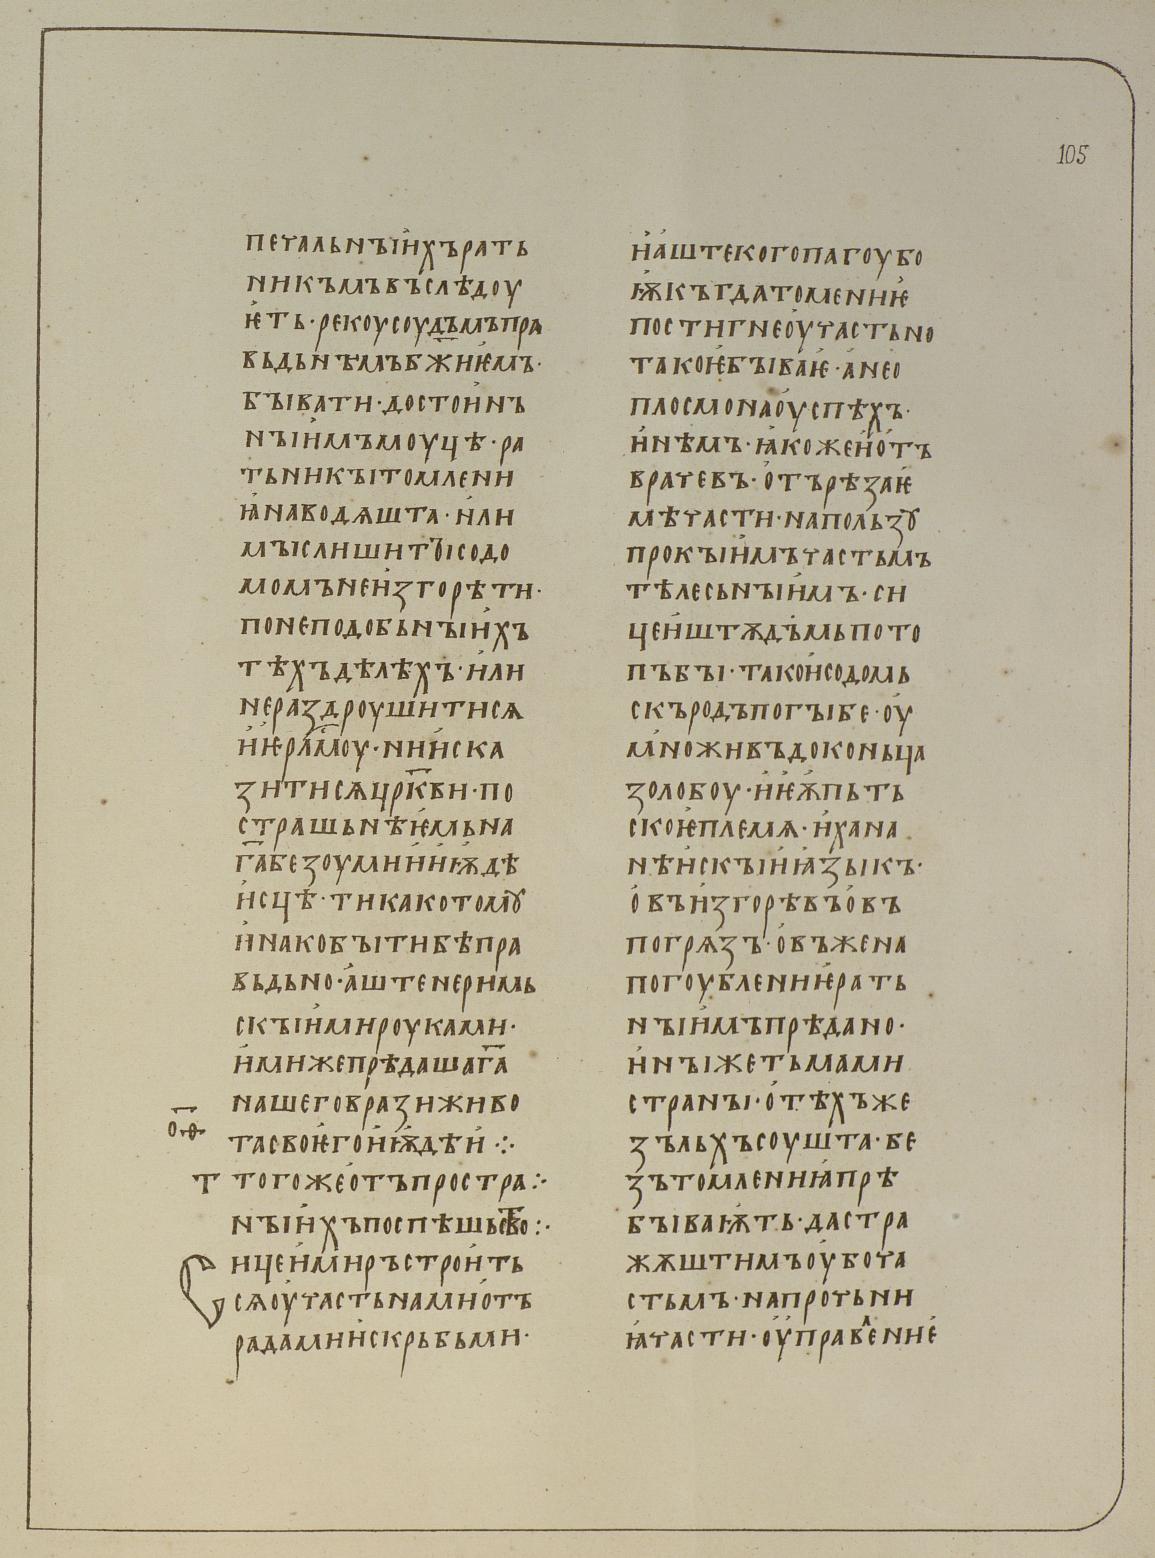 105
печальнꙑихъ рать
никъмъ въслѣдоу
ѥть· рекоу соудъмъ пра
вьдьнъмъ бжиѥмь·
бꙑвати· достоинъ
нꙑимъ моуцѣ· ра
тьникꙑ томлени
ꙗ наводѧшта· или
мꙑслиши тꙑ содо
момъ не изгорѣти·
по неподобьнꙑихъ
тѣхъ дѣлѣхъ· или
не раздроушитисѧ
и ѥрлмоу· ни иска
зитисѧ црк҃ви· по
страшьнѣѥмь на
га҃ безоумии июдѣ
исцѣ· ти како томꙋ
инако бꙑти бѣ пра
вьдьно· аште не римь
скꙑими роуками·
имиже прѣдаша га҃
наше го врази живо
та своѥго июдѣи ⁘
о҃ѳ
т того же отъ простра:·
нꙑихъ поспѣшьство:·
Сице и миръ строить
сѧ оу частьнами отъ
радами и скрьбьми·
и аште кого пагоубо
ѭ къгда томлениѥ
постигне оу частьно
тако и бꙑваѥ· а не о
плосмона оуспѣхъ·
и нѣмъ· ꙗкоже и отъ
врачевъ· отърѣзаѥ
мѣ части· на пользꙋ
прокꙑимъ частьмъ
тѣлесьнꙑимъ· си
це иштѫдъмь пото
пъ бꙑ· тако и содомь
скъ родъ погꙑбе· оу
множивъ до коньца
золобоу· и ѥѫпьть
скоѥ племѧ· и хана
нѣискꙑи ꙗзыкъ·
овъ изгорѣвъ овъ
погрѧзъ· овъ же на
погоублениѥ рать
нꙑимъ прѣдано·
инꙑ же тьмами
странꙑ· отѣхъ же
зъльхъ соушта· бе
зъ томлениꙗ прѣ
бꙑваѭть· да стра
жѫштимъ оубо ча
стьмъ· на прочьни
ꙗ части· оуправлениѥ